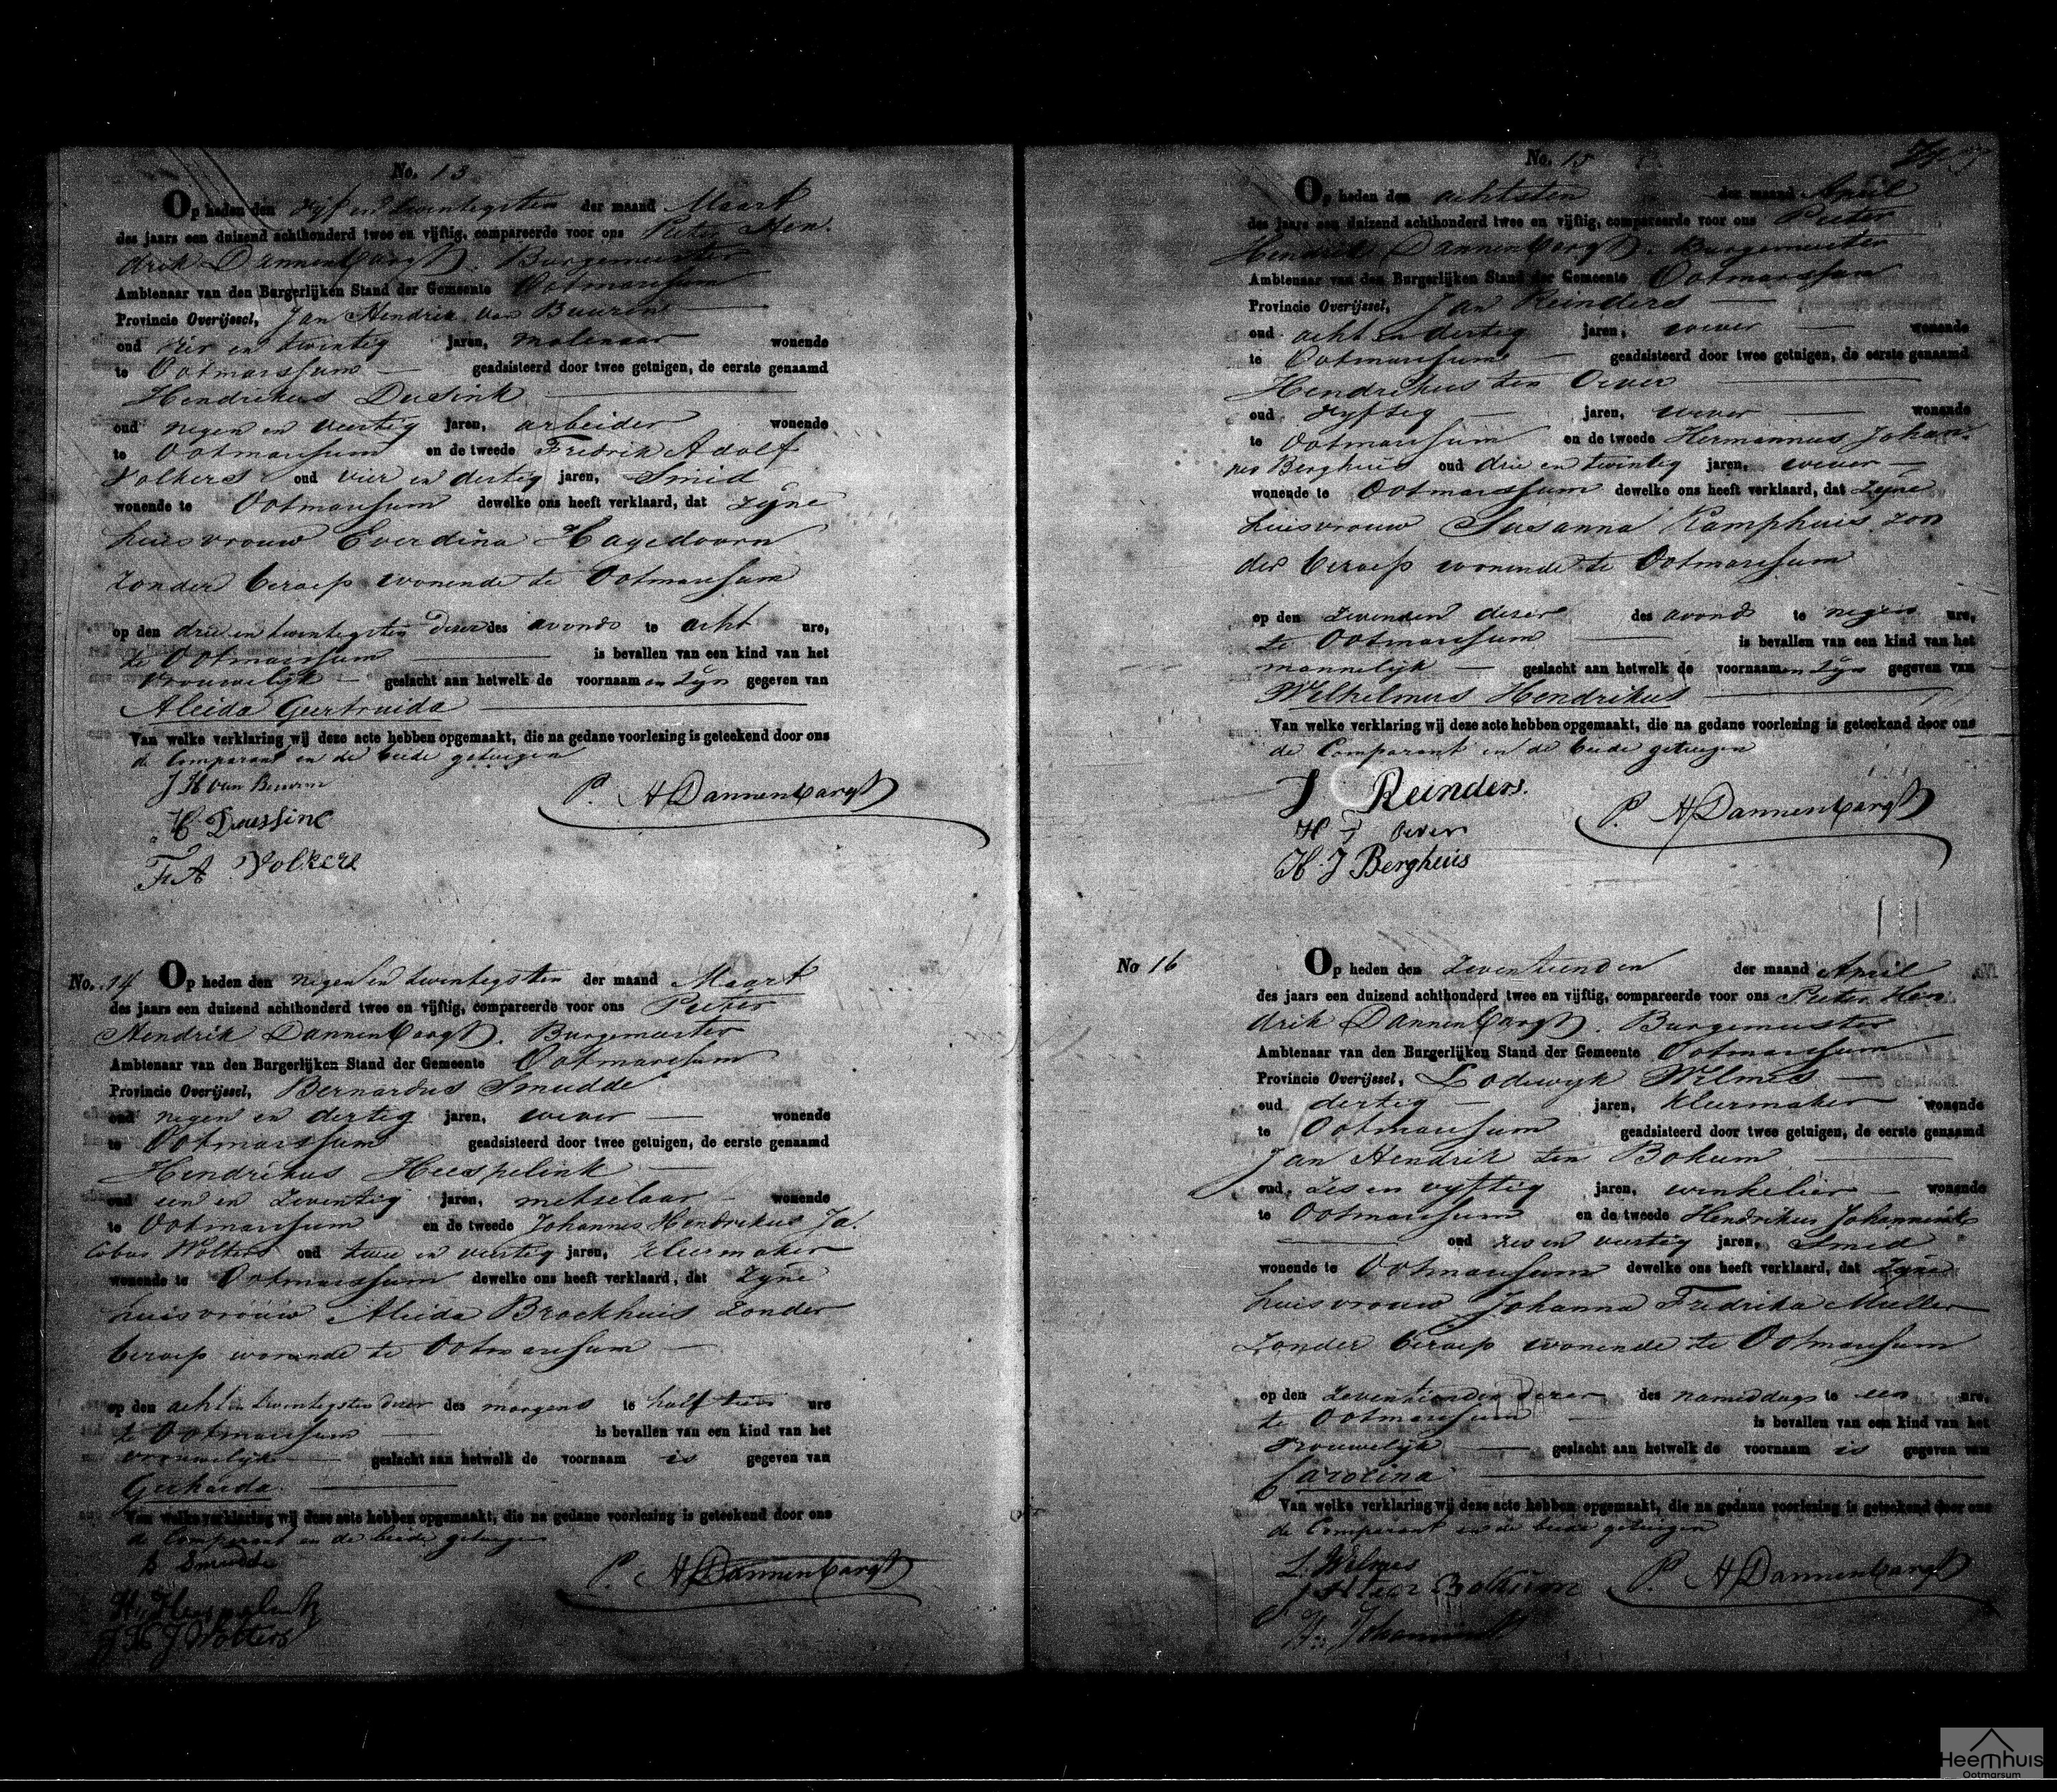 No. 13
Op heden den vyf en twintigsten der maand Maart
des jaars een duizend achthonderd twee en vijftig, compareerde voor ons Pieter Hen-
drik Dannenbargh. Burgemeester
Ambtenaar van den Burgerlijken Stand der Gemeente Ootmarssum
Provincie Overijssel, Jan Hendrik van Buuren
oud vier en twintig jaren, molenaar wonende
te Ootmarssum geadsisteerd door twee getuigen, de eerste genaamd
Hendrikus Deusink
oud negen en veertig jaren, arbeider wonende
te Ootmarssum en de tweede Fredrik Adolf
Volkers oud vier en dertig jaren, Smid
wonende te Ootmarssum dewelke ons heeft verklaard, dat zyne
huisvrouw Everdina Hagedoorn
zonder beroep wonende te Ootmarssum
op den drie en twintigsten dezer des avonds te acht ure,
te Ootmarssum is bevallen van een kind van het
vrouwelijk geslacht aan hetwelk de voornaamen zyn gegeven van
Aleida Geertruida
Van welke verklaring wij deze acte hebben opgemaakt, die na gedane voorlezing is geteekend door ons
de Comparant en de beide getuigen
J H van Beuren
P. H Dannenbargh
H Deussinc
F A Volkers
No. 14 Op heden den negen en twintigsten der maand Maart
des jaars een duizend achthonderd twee en vijftig, compareerde voor ons Pieter
Hendrik Dannenbargh. Burgemeester
Ambtenaar van den Burgerlijken Stand der Gemeente Ootmarssum
Provincie Overijssel, Bernardus Smudde
oud negen en dertig jaren, wever wonende
te Ootmarssum geadsisteerd door twee getuigen, de eerste genaamd
Hendrikus Heespelink
oud een en zeventig jaren, metselaar wonende
te Ootmarssum en de tweede Johannes Hendrikus Ja-
cobus Wolters oud twee en veertig jaren, kleermaker
wonende te Ootmarssum dewelke ons heeft verklaard, dat zyne
huisvrouw Aleida Brockhuis zonder
beroep wonende te Ootmarssum
op den acht en twintigsten dezer des morgens te half tien ure
te Ootmarssum is bevallen van een kind van het
vrouwelijk geslacht aan hetwelk de voornaam is gegeven van
Gerharda
Van welke verklaring wij deze acte hebben opgemaakt, die na gedane voorlezing is geteekend door ons
de Comparant en de beide getuigen
B Smudde
P. H Dannenbargh
H. Heespelink
J H J Wolters
No. 15
Op heden den achtsten der maand April
des jaars een duizend achthonderd twee en vijftig, compareerde voor ons Pieter
Hendrik Dannenbargh. Burgemeester
Ambtenaar van den Burgerlijken Stand der Gemeente Ootmarssum
Provincie Overijssel, Jan Reinders
oud acht en dertig jaren, wever wonende
te Ootmarssum geadsisteerd door twee getuigen, de eerste genaamd
Hendrikus ten Oever
oud vyftig jaren, wever wonende
te Ootmarssum en de tweede Hermannus Johan-
nes Berghuis oud drie en twintig jaren, wever
wonende te Ootmarssum dewelke ons heeft verklaard, dat zyne
huisvrouw Susanna Kamphuis zon
der beroep wonende te Ootmarssum
op den zevenden dezer des avonds te negen ure,
te Ootmarssum is bevallen van een kind van het
mannelijk geslacht aan hetwelk de voornaamen zyn gegeven van
Wilhelmus Hendrikus
Van welke verklaring wij deze acte hebben opgemaakt, die na gedane voorlezing is geteekend door ons
de Comparant en de beide getuigen
J Reinders.
P. H Dannenbargh
H T Oever
H. J Berghuis
No 16 Op heden den zeventienden der maand April
des jaars een duizend achthonderd twee en vijftig, compareerde voor ons Pieter Hen-
drik Dannenbargh. Burgemeester
Ambtenaar van den Burgerlijken Stand der Gemeente Ootmarssum
Provincie Overijssel, Lodewyk Wilmes
oud dertig jaren, kleermaker wonende
te Ootmarssum geadsisteerd door twee getuigen, de eerste genaamd
Jan Hendrik ten Bokum
oud zes en vyftig jaren, winkelier wonende
te Ootmarssum en de tweede Hendrikus Johannink
oud zes en veertig jaren, Smid
wonende te Ootmarssum dewelke ons heeft verklaard, dat zyne
huisvrouw Johanna Fredrika Muller
zonder beroep wonende te Ootmarssum
op den zeventienden dezer des nameddags te een ure,
te Ootmarssum is bevallen van een kind van het
vrouwelijk geslacht aan hetwelk de voornaam is gegeven van
Carolina
Van welke verklaring wij deze acte hebben opgemaakt, die na gedane voorlezing is geteekend door ons
de Comparant en de beide getuigen
L. Wilmes
P. H Dannenbargh
Heemhuis
Ootmarsum